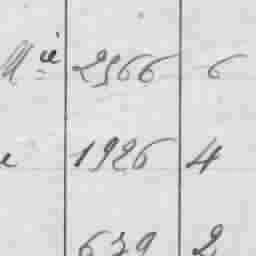 Mie 2566 6
e 1926 4
639 2